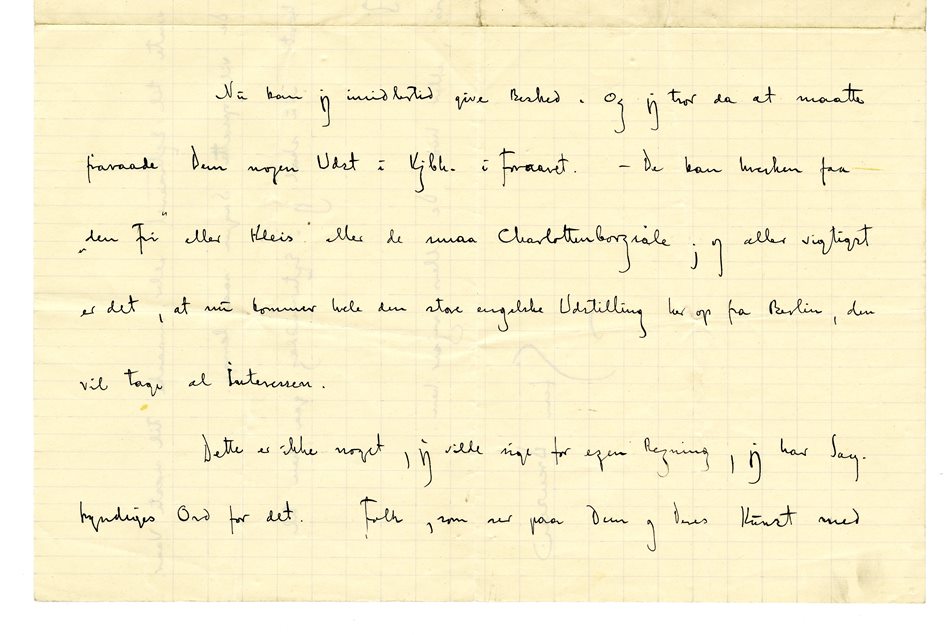 Nu kan jeg imidlertid give Besked. Og jeg tror da at maatte
fraraade Dem nogen Udst i Kjbh. i Foraaret. – De kan hverken faa
"den Fri" eller Kleis eller de smaa Charlottenborgsale; og aller vigtigst
er det, at nu kommer hele den store engelske Udstilling her op fra Berlin, den
vil tage al Interessen.
Dette er ikke noget, jeg vilde sige for egen Regning, jeg har Sag-
kyndiges Ord for det. Folk, som ser paa Dem og Deres Kunst med